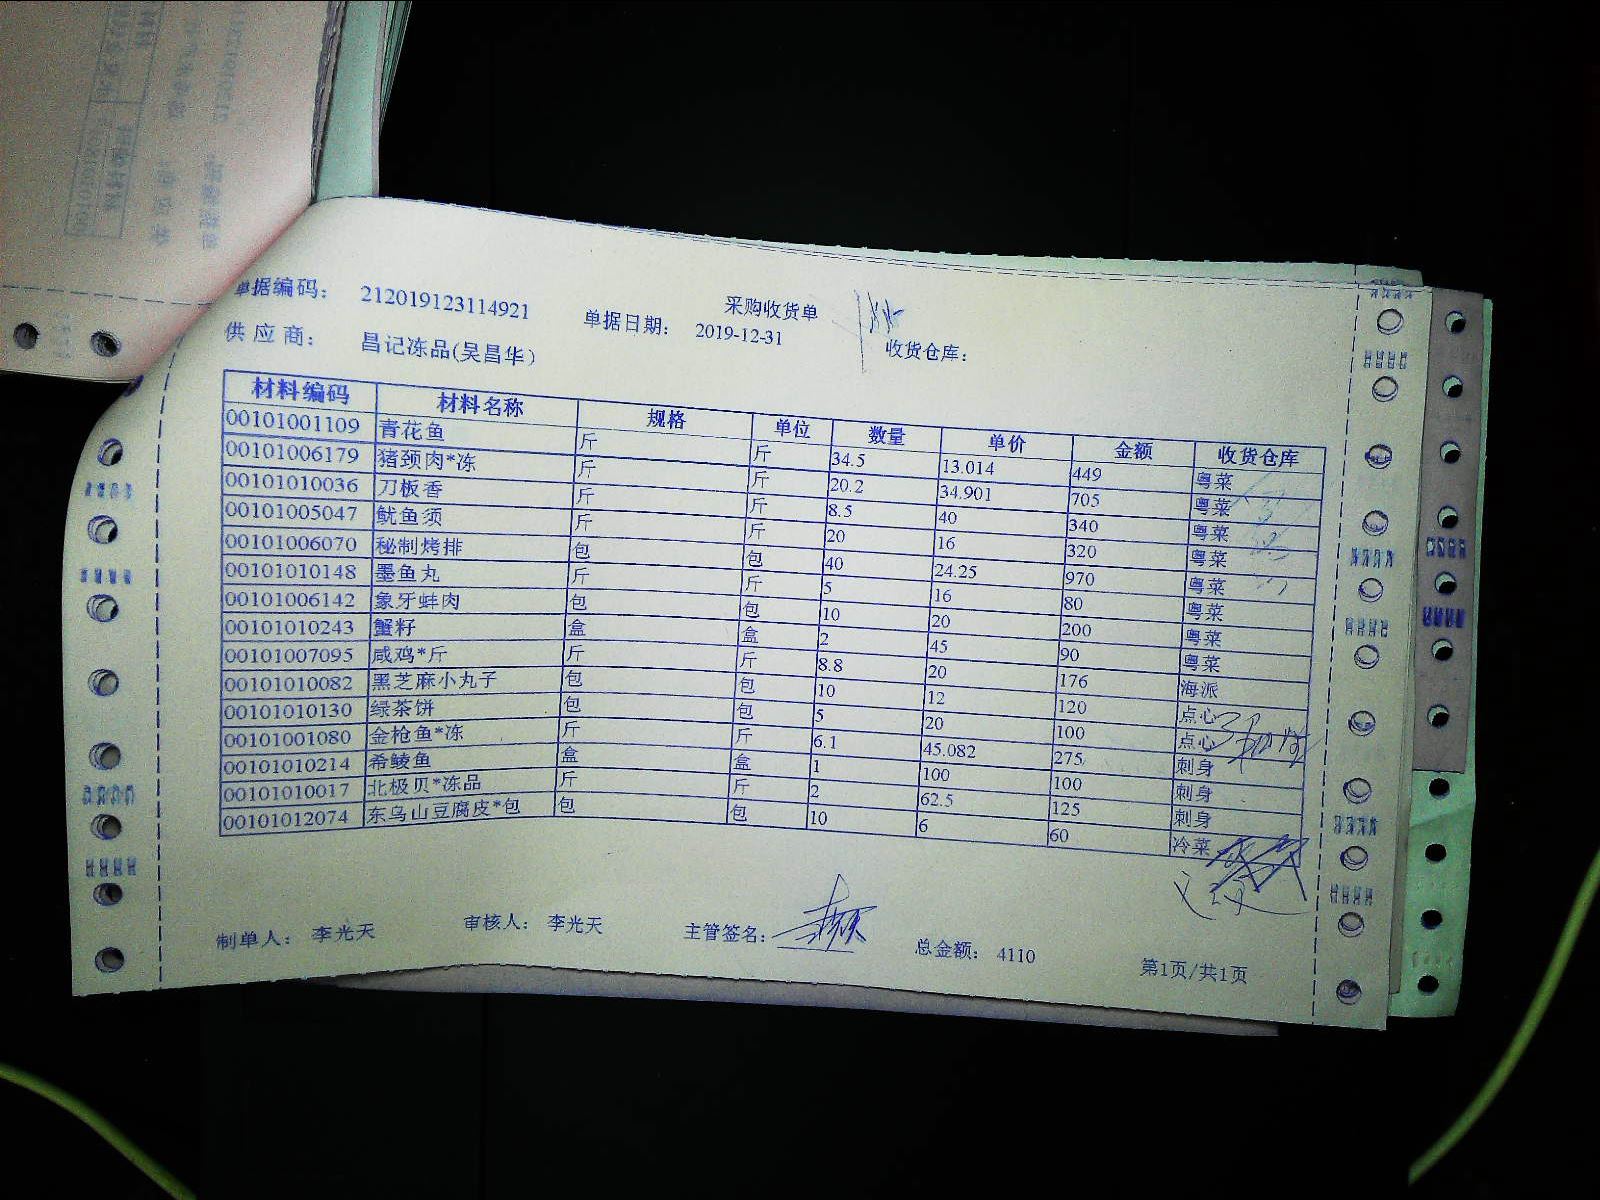 采购收货单
单据编码： 212019123114921 单据日期： 2019-12-31 收货仓库：
供 应 商： 昌记冻品(吴昌华)
材料编码 材料名称 规格 单位 数量 单价 金额 收货仓库
00101001109 青花鱼 斤 斤 34.5 13.014 449 粤菜
00101006179 猪颈肉*冻 斤 斤 20.2 34.901 705 粤菜
00101010036 刀板香 斤 斤 8.5 40 340 粤菜
00101005047 鱿鱼须 斤 斤 20 16 320 粤菜
00101006070 秘制烤排 包 包 40 24.25 970 粤菜
00101010148 墨鱼丸 斤 斤 5 16 80 粤菜
00101006142 象牙蚌肉 包 包 10 20 200 粤菜
00101010243 蟹籽 盒 盒 2 45 90 粤菜
00101007095 咸鸡*斤 斤 斤 8.8 20 176 海派
00101010082 黑芝麻小丸子 包 包 10 12 120 点心
00101010130 绿茶饼 包 包 5 20 100 点心
00101001080 金枪鱼*冻 斤 斤 6.1 45.082 275 刺身
00101010214 希鲮鱼 盒 盒 1 100 100 刺身
00101010017 北极贝*冻品 斤 斤 2 62.5 125 刺身
00101012074 东乌山豆腐皮*包 包 包 10 6 60 冷菜
制单人： 李光天 审核人： 李光天 主管签名： 总金额： 4110 第1页/共1页